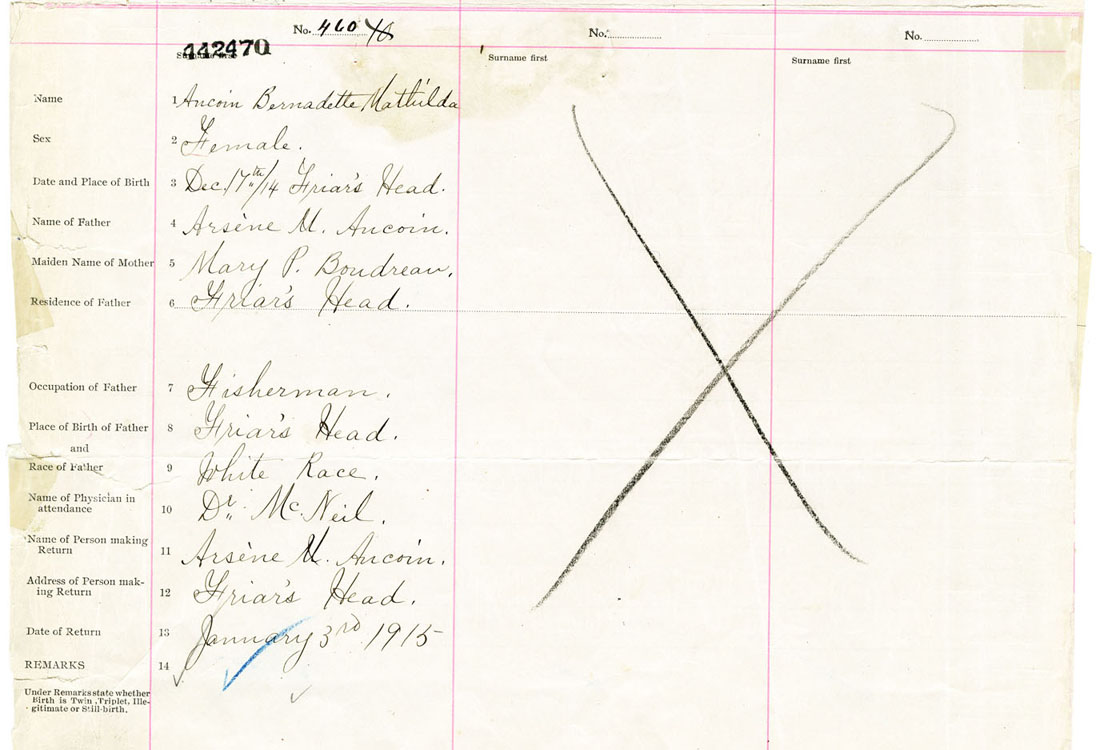 No. 460 No. No.
442470
Surname first Surname first Surname first
Name 1 Aucoin Bernadette Mathilda
Sex 2 Female.
Date and Place of Birth 3 Dec. 17th/14 Friar's Head.
Name of Father 4 Arsène U. Aucoin.
Maiden Name of Mother 5 Mary P. Boudreau.
Residence of Father 6 Friar's Head.
Occupation of Father 7 Fisherman.
Place of Birth of Father 8 Friar's Head.
and
Race of Father 9 White Race.
Name of Physician in
attendance 10 Dr. McNeil.
Name of Person making
Return 11 Arsène U. Aucoin.
Address of Person mak-
ing Return 12 Friar's Head.
Date of Return 13 January 3rd 1915
REMARKS 14
Under Remarks state whether
Birth is Twin, Triplet, Ille-
gitimate or Still-birth.